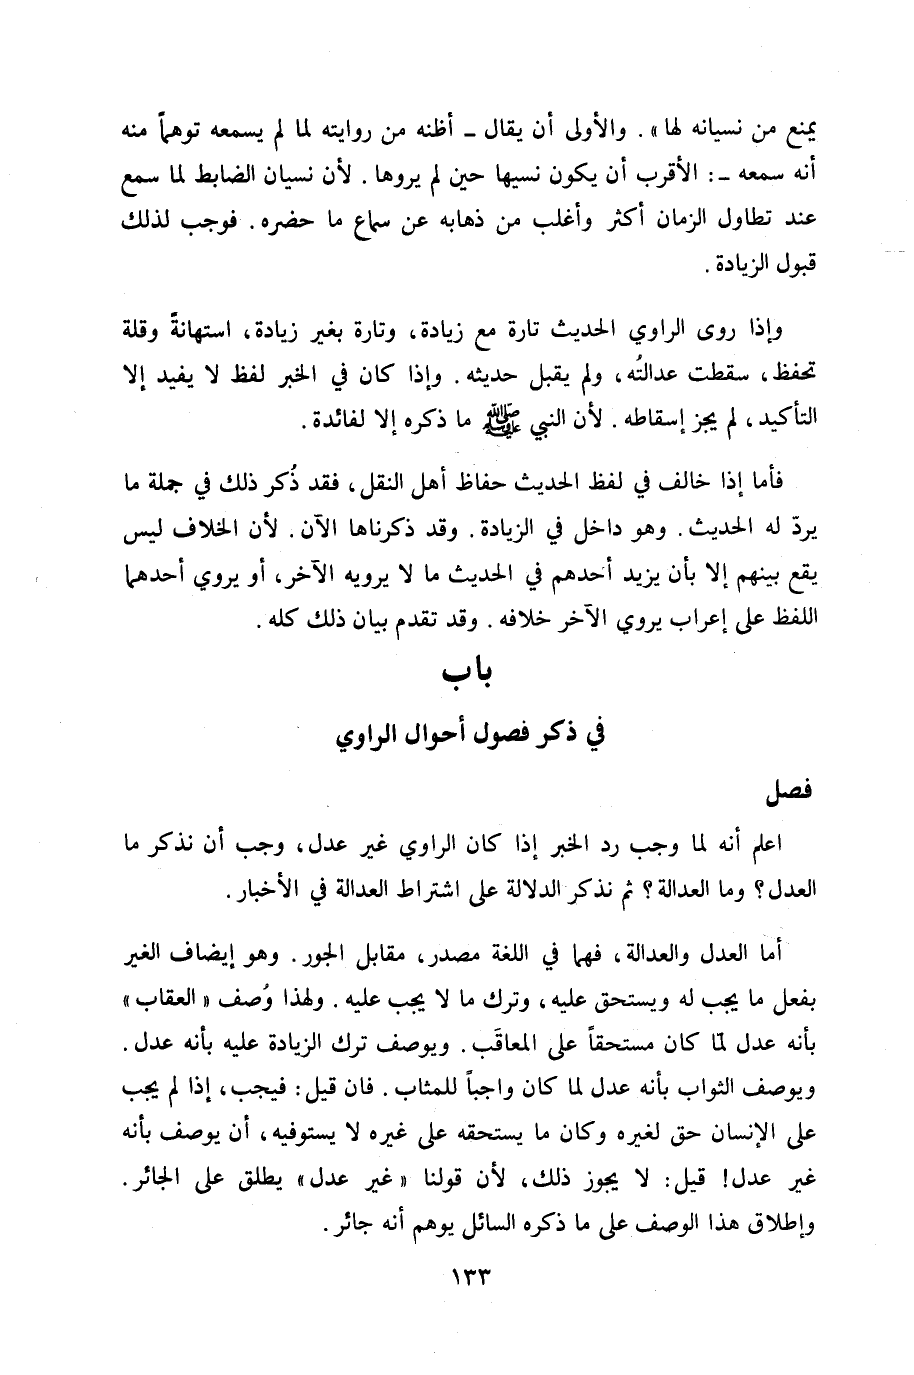 يمنع من نسيانه لها» . والأولى أن يقال ـ أظنه من روايته لما لم يسمعه توهماً منه
أنه سمعه ـ: الأقرب أن يكون نسيها حين لم يروها . لأن نسيان الضابط لما سمع
عند تطاول الزمان أكثر وأغلب من ذهابه عن سماع ما حضره . فوجب لذلك
قبول الزيادة .
وإذا روى الراوي الحديث تارة مع زيادة، وتارة بغير زيادة، استهانةً وقلة
تحفظ، سقطت عدالتُه، ولم يقبل حديثه . وإذا كان في الخبر لفظ لا يفيد إلا
التأكيد، لم يجز إسقاطه . لأن النبي ﷺ ما ذكره إلا لفائدة .
فأما إذا خالف في لفظ الحديث حفاظ أهل النقل، فقد ذُكر ذلك في جملة ما
يردّ له الحديث . وهو داخل في الزيادة . وقد ذكرناها الآن . لأن الخلاف ليس
يقع بينهم إلا بأن يزيد أحدهم في الحديث ما لا يرويه الآخر، أو يروي أحدهما
اللفظ على إعراب يروي الآخر خلافه . وقد تقدم بيان ذلك كله .
باب
في ذكر فصول أحوال الراوي
فصل
اعلم أنه لما وجب رد الخبر إذا كان الراوي غير عدل، وجب أن نذكر ما
العدل؟ وما العدالة؟ ثم نذكر الدلالة على اشتراط العدالة في الأخبار .
أما العدل والعدالة، فهما في اللغة مصدر، مقابل الجور . وهو إيضاف الغير
بفعل ما يجب له ويستحق عليه، وترك ما لا يجب عليه . ولهذا وُصف «العقاب»
بأنه عدل لمّا كان مستحقاً على المعاقَب . ويوصف ترك الزيادة عليه بأنه عدل .
ويوصف الثواب بأنه عدل لما كان واجباً للمثاب . فان قيل: فيجب، إذا لم يجب
على الإنسان حق لغيره وكان ما يستحقه على غيره لا يستوفيه، أن يوصف بأنه
غير عدل! قيل: لا يجوز ذلك، لأن قولنا «غير عدل» يطلق على الجائر .
وإطلاق هذا الوصف على ما ذكره السائل يوهم أنه جائر .
١٣٣